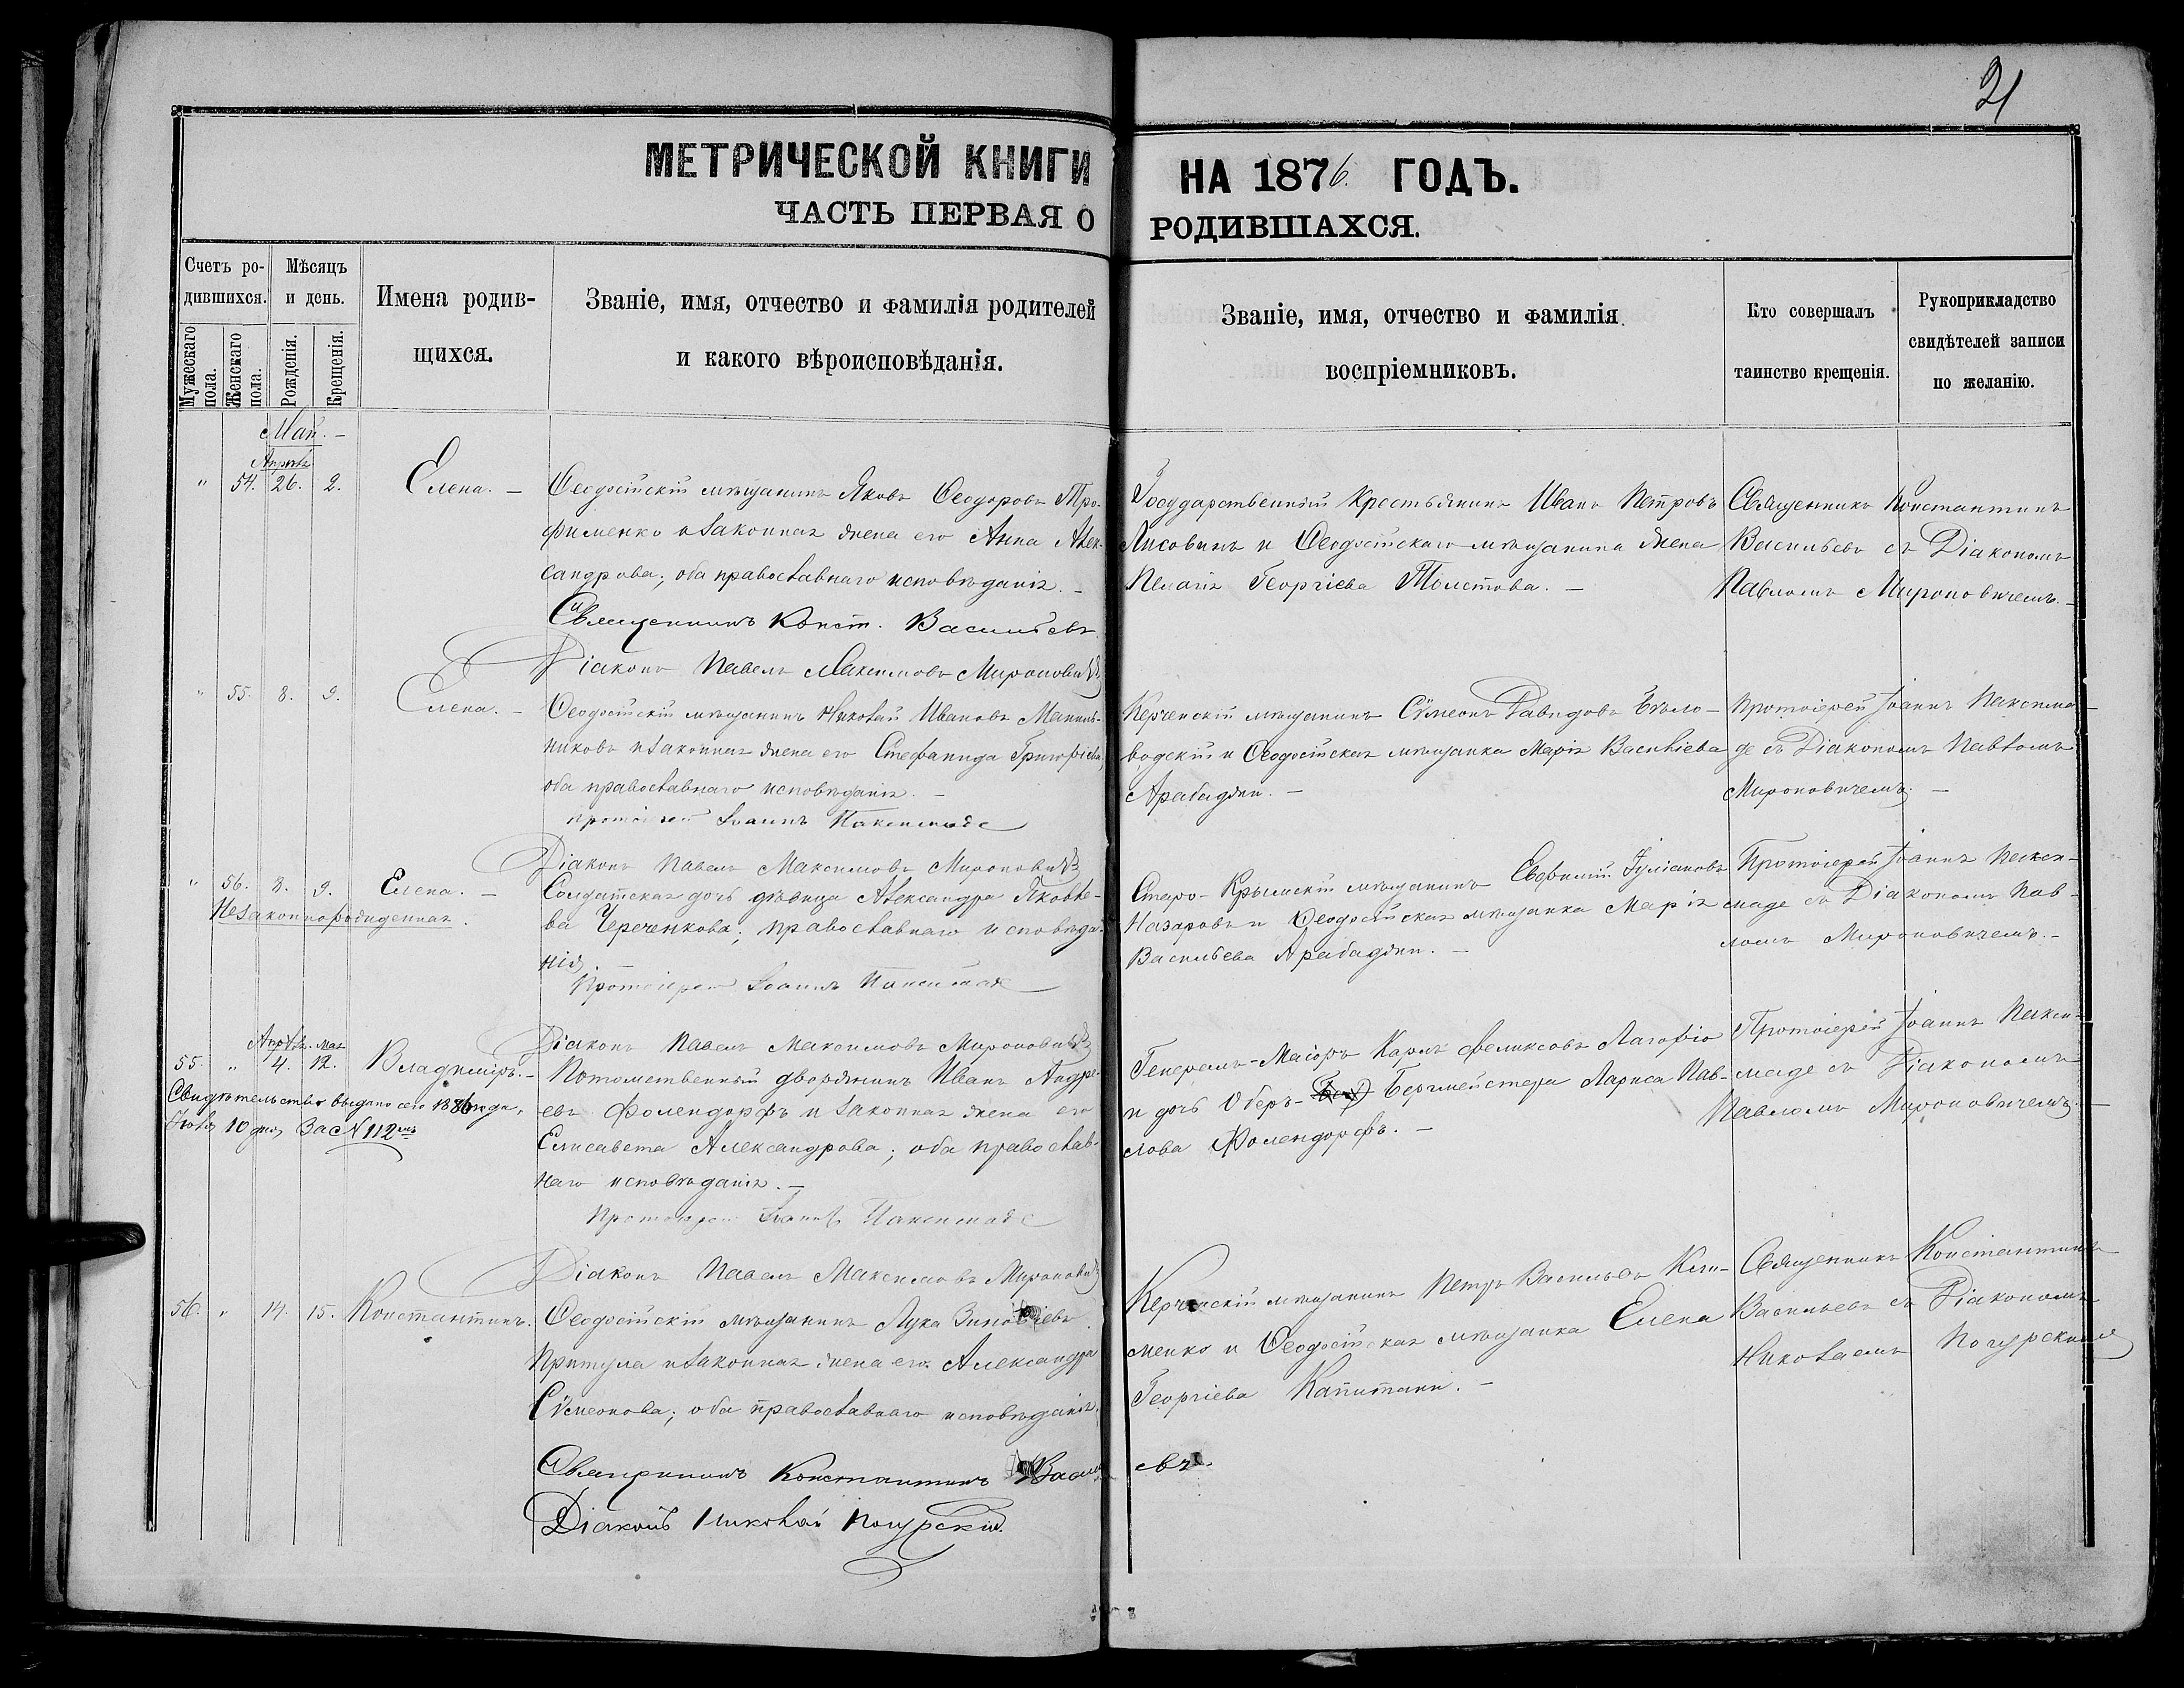 21
МЕТРИЧЕСКОЙ КНИГИ НА 1876. ГОДЪ.
ЧАСТЬ ПЕРВАЯ О РОДИВШАХСЯ.
Счетъ ро-
дившихся.
Мужескаго пола.
Женскаго пола.
Мѣсяцъ
и день.
Рожденія.
Крещенія.
Имена родив-
щихся.
Званіе, имя, отчество и фамилія родителей
и какого вѣроисповѣданія.
Званіе, имя, отчество и фамилія
воспріемниковъ.
Кто совершалъ
таинство крещенія.
Рукоприкладство
свидѣтелей записи
по желанію.
Май. —
Апрѣля
" 54. 26. 2.
Елена. —
Ѳеодосійскій мѣщанинъ Яковъ Ѳеодоровъ Тро-
фименко и законная жена его Анна Алек-
сандрова; оба православнаго исповѣданія. —
Священникъ Конст. Васильевъ
Діаконъ Павелъ Максимовъ Мироновичъ
Государственный Крестьянинъ Иванъ Петровъ
Лисовинъ и Ѳеодосійскаго мѣщанина жена
Пелагія Георгіева Толстова. —
Священникъ Константинъ
Васильевъ съ Діакономъ
Павломъ Мироновичемъ. —
" 55. 8. 9.
Елена. —
Ѳеодосійскій мѣщанинъ Николай Ивановъ Маниль-
никовъ и законная жена его Стефанида Григорьева,
оба православнаго исповѣданія. —
Протоіерей Іоаннъ Паксимаде
Діаконъ Павелъ Максимовъ Мироновичъ
Керченскій мѣщанинъ Сѵмеонъ Давидовъ Бѣло-
водскій и Ѳеодосійская мѣщанка Марія Василіева
Арабаджи. —
Протоіерей Іоаннъ Паксима-
де съ Діакономъ Павломъ
Мироновичемъ. —
" 56. 8. 9.
Незаконнорожденная.
Елена. —
Солдатская дочь дѣвица Александра Яковле-
ва Череченкова; православнаго исповѣда-
нія. —
Протоіерей Іоаннъ Паксимаде
Діаконъ Павелъ Максимовъ Мироновичъ
Старо-Крымскій мѣщанинъ Евфимій Іуліановъ
Назаровъ и Ѳеодосійская мѣщанка Марія
Васильева Арабаджи. —
Протоіерей Іоаннъ Пакси-
маде съ Діакономъ Пав-
ломъ Мироновичемъ. —
Апрѣля. мая
55. " 4. 12.
Владиміръ. —
Свидѣтельство выдано сего 1886 года,
10 дня, за № 112мъ
Потомственный дворянинъ Иванъ Андре-
евъ Фолендорфъ и законная жена его
Елисавета Александрова; оба православ-
наго исповѣданія. —
Протоіерей Іоаннъ Паксимаде
Діаконъ Павелъ Максимовъ Мироновичъ
Генералъ-Маіоръ Карлъ Феликсовъ Лагоріо
и дочь Оберъ- Бергмейстера Лариса Пав-
лова Фолендорфъ. —
Протоіерей Іоаннъ Пакси-
маде съ Діакономъ
Павломъ Мироновичемъ. —
56. " 14. 15.
Константинъ.
Ѳеодосійскій мѣщанинъ Лука Зиновіевъ
Притула и законная жена его Александра
Сѵмеонова; оба православнаго исповѣданія.
Священникъ Константинъ Василь евъ.
Діаконъ Николай Погурскій.
Керченскій мѣщанинъ Петръ Васильевъ Кли-
менко и Ѳеодосійская мѣщанка Елена
Георгіева Капитани. —
Священникъ Константинъ
Васильевъ съ Діакономъ
Николаемъ Погурскимъ